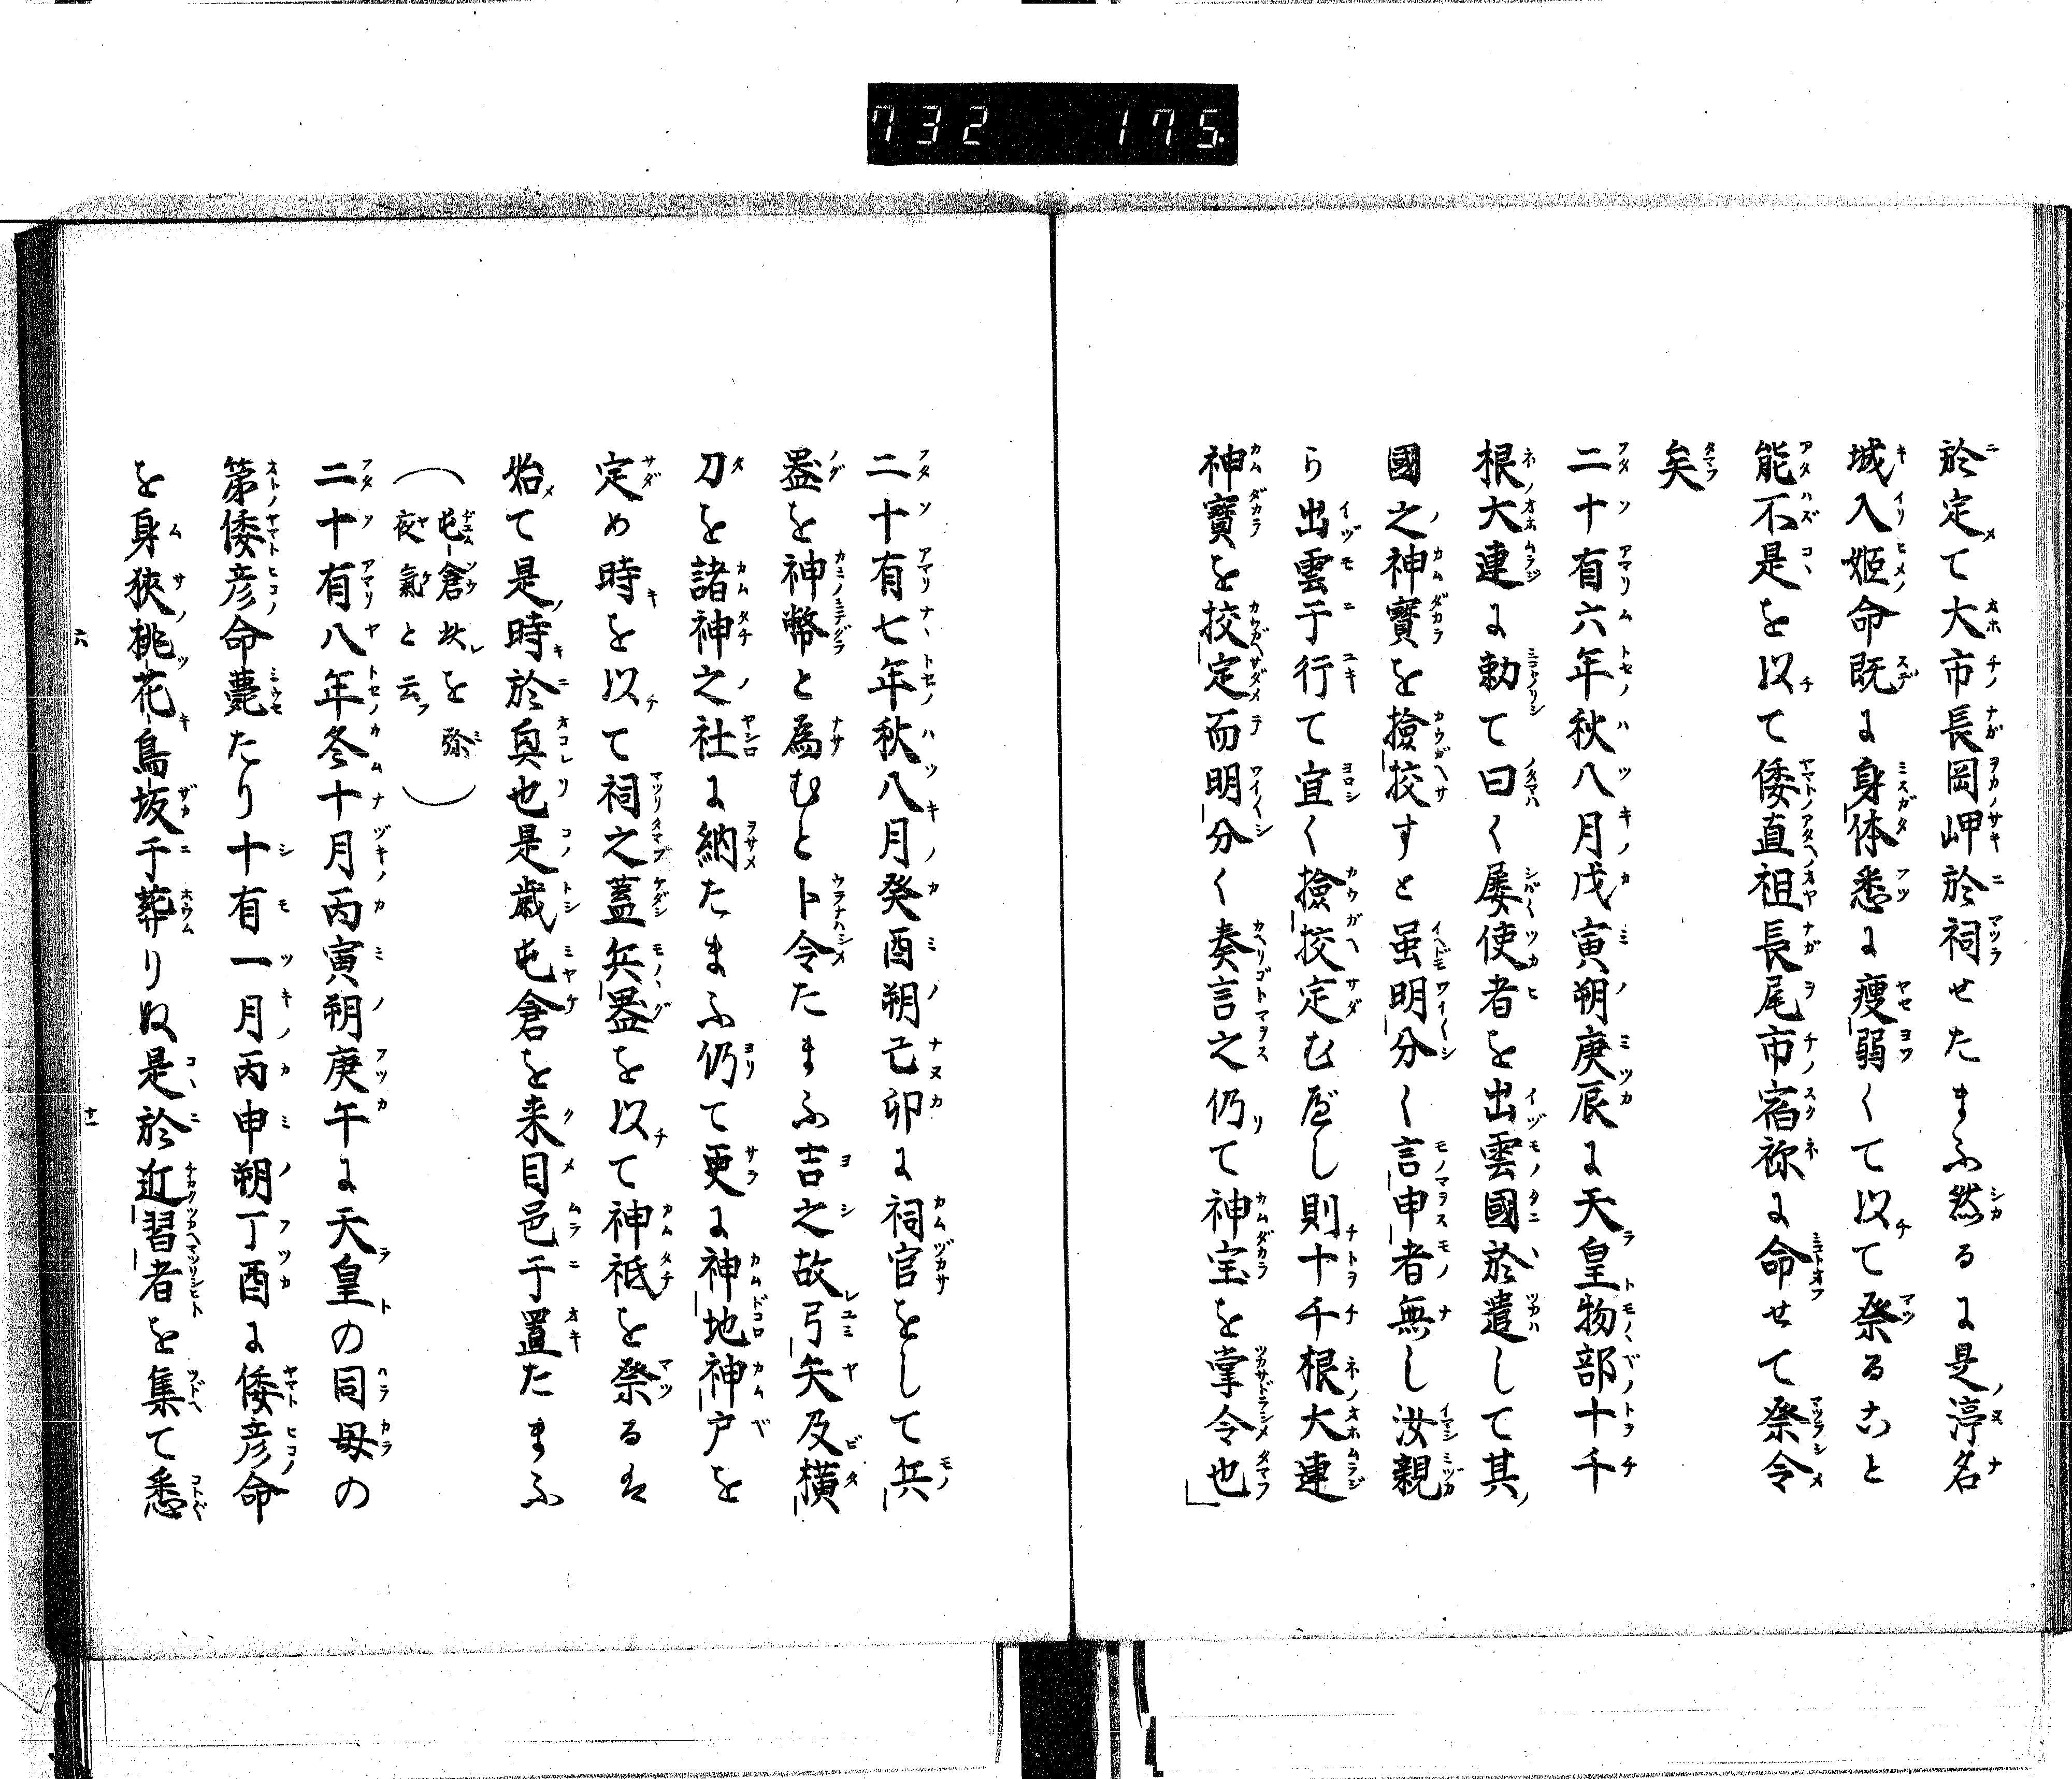 732 175.
於定て大市長岡岬於祠せたまふ然るに是渟名
城入姫命既に身体悉に痩弱くて以て祭ること
能不是を以て倭直祖長尾市宿祢に命せて祭令
矣
二十有六年秋八月戊寅朔庚辰に天皇物部十千
根大連に勅て曰く屡使者を出雲國於遣して其
國之神寶を撿挍すと虽明分く言申者無し汝親
ら出雲于行て宜く撿挍定むべし則十千根大連
神寶を挍定而明分く奏言之仍て神宝を掌令也
二十有七年秋八月癸酉朔己卯に祠官をして兵
器を神幣と為むと卜令たまふ吉之故弓矢及横
刀を諸神之社に納たまふ仍て更に神地神戸を
定め時を以て祠之蓋兵器を以て神祇を祭るは
始て是時於臭也是歳屯倉を来目邑于置たまふ
（屯倉此を弥
夜氣と云）
二十有八年冬十月丙寅朔庚午に天皇の同母の
第倭彦命薨たり十有一月丙申朔丁酉に倭彦命
を身狹桃花鳥坂于葬りぬ是於近習者を集て悉
六
十一